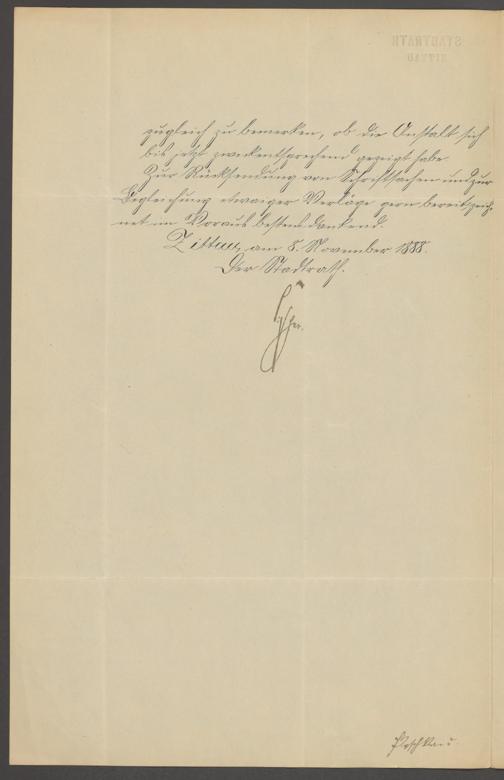 STADTRATH
ZITTAU
zugleich zu bemerken, ob die Anstalt sich
bis jetzt zweckentsprechend gezeigt habe.
Zur Rücksendung von Schriftsachen und zur
Begleichung etwaiger Verläge gern bereit, zeich-
net im Voraus bestens dankend.
Zittau, am 8. November 1888.
Der Stadtrath.